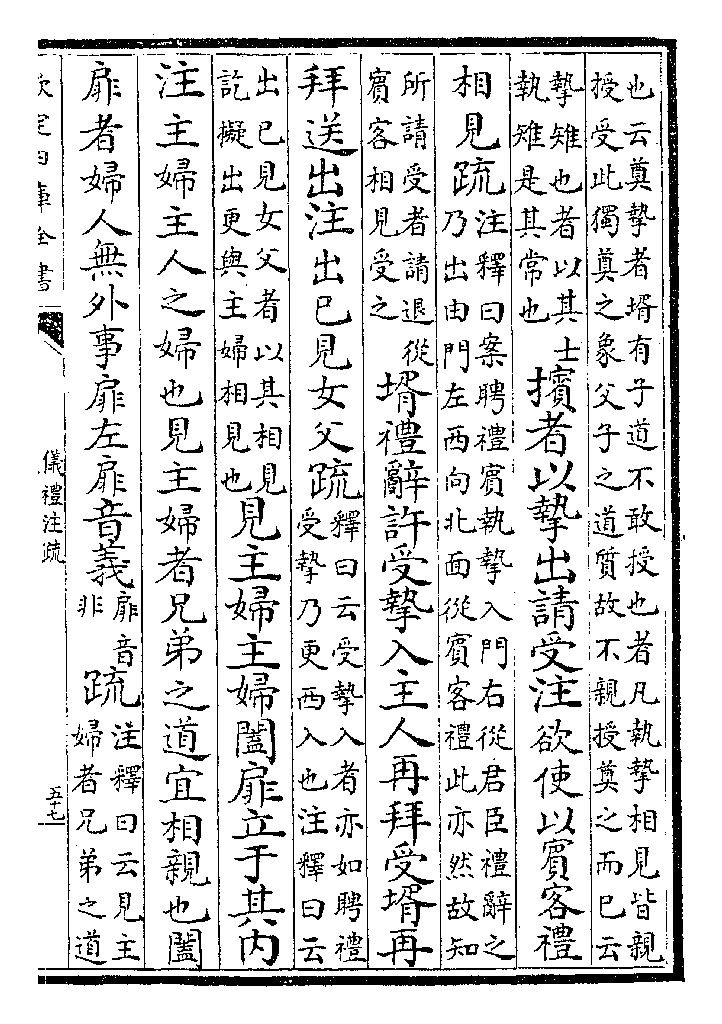 也云奠摯者壻有子道不敢授也者凡執摯相見皆親
授受此獨奠之象父子之道質故不親授奠之而已云
摯雉也者以其士
執雉是其常也
擯者以摯出請受注欲使以賓客禮
相見疏
注釋曰案聘禮賓執摯入門右從君臣禮辭之
乃出由門左西向北面從賓客禮此亦然故知
所請受者請退從
賓客相見受之
壻禮辭許受摯入主人再拜受壻再
拜送出注出已見女父疏
釋曰云受摯入者亦如聘禮
受摯乃更西入也注釋曰云
出已見女父者以其相見
訖擬出更與主婦相見也
見主婦主婦闔扉立于其內
注主婦主人之婦也見主婦者兄弟之道宜相親也闔
扉者婦人無外事扉左扉音義
扉音
非
疏
注釋曰云見主
婦者兄弟之道
欽定四庫全書
儀禮注疏
五十七